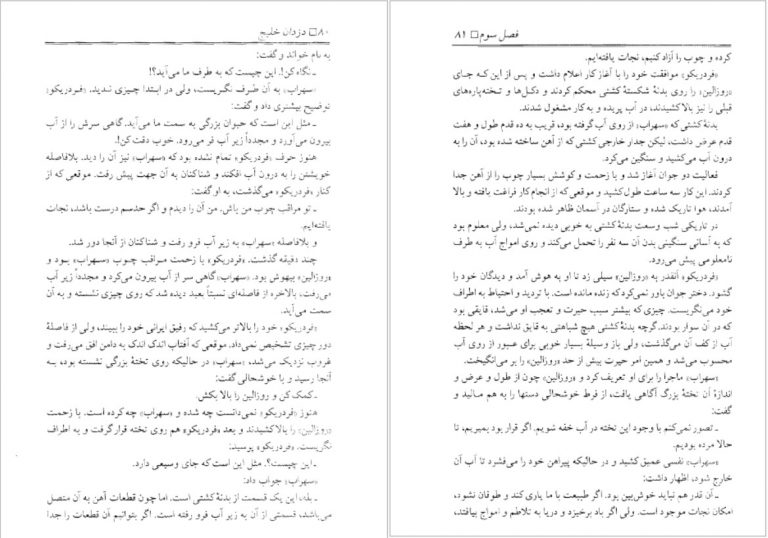 ۸۰ □ دزدان خلیج
به نام خواند و گفت:
ـ نگاه کن!. این چیست که به طرف ما می‌آید؟!
«سهراب» به آن طرف نگریست، ولی در ابتدا چیزی ندید. «فردریکو»
توضیح بیشتری داد و گفت:
ـ مثل این است که حیوان بزرگی به سمت ما می‌آید. گاهی سرش را از آب
بیرون می‌آورد و مجدداً زیر آب فرو می‌رود. خوب دقت کن!.
هنوز حرف «فردریکو» تمام نشده بود که «سهراب» نیز آن را دید. بلافاصله
خویشتن را به درون آب افکند و شناکنان به آن جهت پیش رفت. موقعی که از
کنار «فردریکو» می‌گذشت، به او گفت:
ـ تو مراقب چوب من باش. من آن را دیدم و اگر حدسم درست باشد، نجات
یافته‌ایم.
و بلافاصله «سهراب» به زیر آب فرو رفت و شناکنان از آنجا دور شد.
چند دقیقه گذشت. «فردریکو» با زحمت مراقب چوب «سهراب» بود و
«روزالین» بیهوش بود. «سهراب» گاهی سر از آب بیرون می‌کرد و مجدداً زیر آب
می‌رفت. بالاخره از فاصله‌ای نسبتاً بعید دیده شد که روی چیزی نشسته و به آن
سمت می‌آید.
«فردریکو» خود را بالاتر می‌کشید که رفیق ایرانی خود را ببیند، ولی از فاصلهٔ
دور چیزی تشخیص نمی‌داد. موقعی که آفتاب اندک اندک به دامن افق می‌رفت و
غروب نزدیک می‌شد، «سهراب» در حالیکه روی تختهٔ بزرگی نشسته بود، به
آنجا رسید و با خوشحالی گفت:
ـ کمک کن و روزالین را بالا بکش.
هنوز «فردریکو» نمی‌دانست چه شده و «سهراب» چه کرده است. با زحمت
«روزالین» را بالا کشیدند و بعد «فردریکو» هم روی تخته قرار گرفت و به اطراف
نگریست. «فردریکو» پرسید:
ـ این چیست؟. مثل این است که جای وسیعی دارد.
«سهراب» جواب داد:
ـ بله، این یک قسمت از بدنهٔ کشتی است. اما چون قطعات آهن به آن متصل
می‌باشد، قسمتی از آن به زیر آب فرو رفته است. اگر بتوانیم آن قطعات را جدا
فصل سوم □ ۸۱
کرده و چوب را آزاد کنیم، نجات یافته‌ایم.
«فردریکو» موافقت خود را با آغاز کار اعلام داشت و پس از این که جای
«روزالین» را روی بدنهٔ شکستهٔ کشتی محکم کردند و دکل‌ها و تخته‌پاره‌های
قبلی را نیز بالا کشیدند، در آب پریده و به کار مشغول شدند.
بدنهٔ کشتی که «سهراب» از روی آب گرفته بود، قریب به ده قدم طول و هفت
قدم عرض داشت، لیکن جدار خارجی کشتی که از آهن ساخته شده بود، آن را به
درون آب می‌کشید و سنگین می‌کرد.
فعالیت دو جوان آغاز شد و با زحمت و کوشش بسیار چوب را از آهن جدا
کردند. این کار سه ساعت طول کشید و موقعی که از انجام کار فراغت یافته و بالا
آمدند، هوا تاریک شده و ستارگان در آسمان ظاهر شده بودند.
در تاریکی شب وسعت بدنهٔ کشتی به خوبی دیده نمی‌شد، ولی معلوم بود
که به آسانی سنگینی بدن آن سه نفر را تحمل می‌کند و روی امواج آب به طرف
نامعلومی پیش می‌رود.
«فردریکو» آنقدر به «روزالین» سیلی زد تا او به هوش آمد و دیدگان خود را
گشود. دختر جوان باور نمی‌کرد که زنده مانده است. با تردید و احتیاط به اطراف
خود می‌نگریست. چیزی که بیشتر سبب حیرت و تعجب او می‌شد، قایقی بود
که در آن سوار بودند. گرچه بدنهٔ کشتی هیچ شباهتی به قایق نداشت و هر لحظه
آب از کف آن می‌گذشت، ولی باز وسیلهٔ بسیار خوبی برای عبور از روی آب
محسوب می‌شد و همین امر حیرت بیش از حد «روزالین» را بر می‌انگیخت.
«سهراب» ماجرا را برای او تعریف کرد و «روزالین» چون از طول و عرض و
اندازهٔ آن تختهٔ بزرگ آگاهی یافت، از فرط خوشحالی دستها را به هم مالید و
گفت:
ـ تصور نمی‌کنم با وجود این تخته در آب خفه شویم. اگر قرار بود بمیریم، تا
حالا مرده بودیم.
«سهراب» نفسی عمیق کشید و در حالیکه پیراهن خود را می‌فشرد تا آب آن
خارج شود، اظهار داشت:
ـ آن قدر هم نباید خوش‌بین بود. اگر طبیعت با ما یاری کند و طوفان نشود،
امکان نجات موجود است. ولی اگر باد برخیزد و دریا به تلاطم و امواج بیافتد،